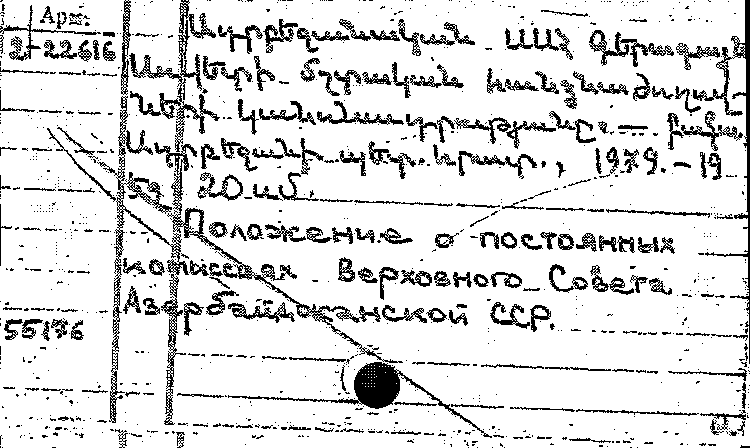 Арм.
2-22616
Ադրբեջանական ՍՍՀ Գերագույն
Սովետի մշտական հանձնաժողով-
ների կանոնադրությունը. — Բաքու
Ադրբեջանի պետ. հրատ., 1979. – 19
էջ 20 սմ.
Положение о постоянных
комиссиях Верховного Совета
Азербайджанской ССР.
55176